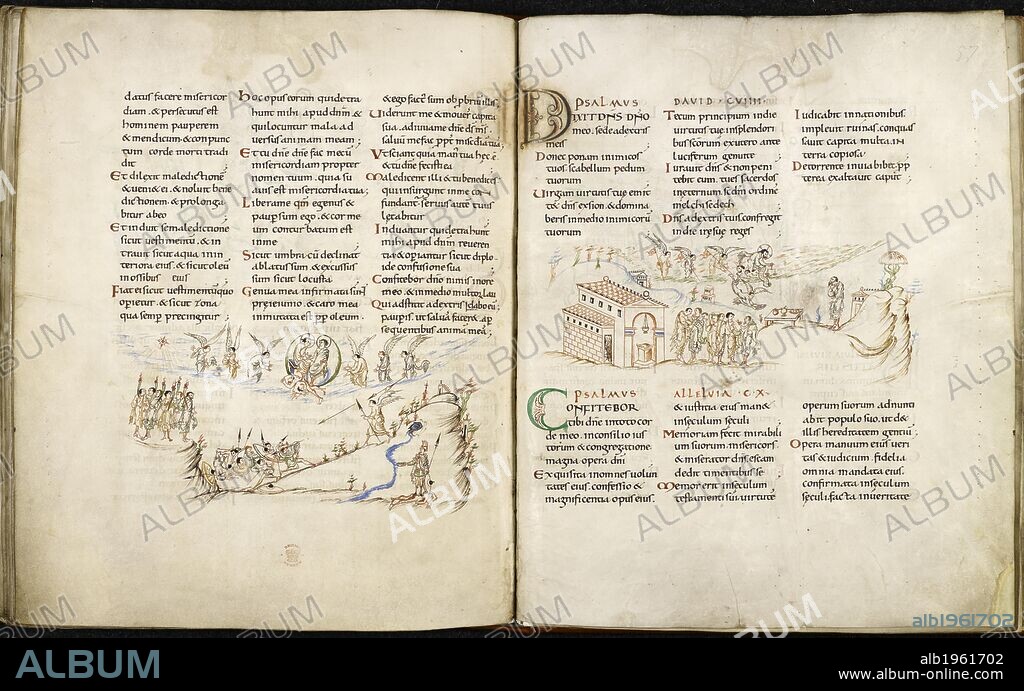 datus facere misericor
diam . & persecutus est
hominem pauperem
& mendicum & conpunc
tum corde morti tradi
dit
Et dilexit maledictionē
& ueniet ei . & noluit bene
dictionem & prolonga
bitur abeo
Et induit se maledictione
sicut uestimentū . & in
trauit sicut aqua inin
teriora eius . & sicut oleū
in ossibus eius
Fiat ei sicut uestimentū quo
operietur . & sicut zona
qua semp precingitur
Hoc opus eorum qui detra
hunt mihi apud dnm̄ &
qui locuntur mala ad
uersus animam meam
Et tu dn̄e dn̄e fac mecū
misericordiam propter
nomen tuum . quia su
auis est misericordia tua
Libera me
pauper sum ego . & cor me
um conturbatum est
inme
Sicut umbra cū declinat
ablatus sum . & excussus
sum sicut locusta
Genua mea infirmata sun̄
pre ieiunio . & caro mea
inmutata est pp oleum
& ego factˀ sum obpbriū illis
Uiderunt me & mouer̄ capita
sua . adiuua me dn̄e dsˉ msˉ
saluū me fac
Ut sciant quia manˀ tua hec ē
& tu dn̄e fecisti eā
Maledicent illi & tu benedices
qui insurgunt inme con
fundantˀ . seruus autē tuus
letabitur
Induantur qui detrahunt
mihi apud dnm̄ reueren
tia & operiantur sicut diplo
ide confusione sua
Confitebor dn̄o nimis inore
meo . & inmedio multoꝝ lau
Qui adstitit adextris
paupis . ut saluā facer&
sequentibus animā meā
PSALMUS DAVID · CVIIII ·
DIXIT DN̄S DN̄O
meo . sede adextris
meis
Donec ponam inimicos
tuos . scabellum pedum
tuorum
Uirgam uirtutis tuę emit
t& dn̄s exsion . & domina
beris inmedio inimicorū
tuorum
Tecum principium indie
uirtutis tuę . insplendori
bus scōrum exutero ante
luciferum genui te
Iurauit dn̄s & non peni
tebit eum . tu es sacerdos
inęternum . scdm̄ ordine
melchisedech
Dn̄s adextris tuis confregit
indie irę suę reges
Iudicabit innationibus .
impleuit ruinas . conquas
sauit capita multa . in
terra copiosa
Detorrente inuia bib& . pp
terea exaltauit caput
PSALMUS ALLELUIA · CX ·
CONFITEBOR
tibi dn̄e intoto cor
de meo . inconsilio ius
torum & congregatione
magna opera dn̄i
Exquisita inomnes uolun
tates eius . confessio &
magnificentia opus eius .
& iustitia eius man&
insęculum sęculi
Memoriam fecit mirabili
um suorum . misericors
& miserator dn̄s . escam
dedit timentibus se
Memor erit insęculum
testamenti sui . uirtutē
operum suorum adnunti
abit populo suo . ut d&
illis hereditatem gentiū
Opera manuum eius ueri
tas & iudicium . fidelia
omnia mandata eius .
confirmata insęculum
sęculi . facta inueritate
57
ALBUM
alb1961702
ALBUM
alb1961702
www.album-online.com